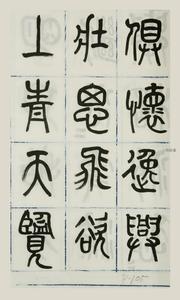 俱懷逸興
壯思飛欲
上青天覽